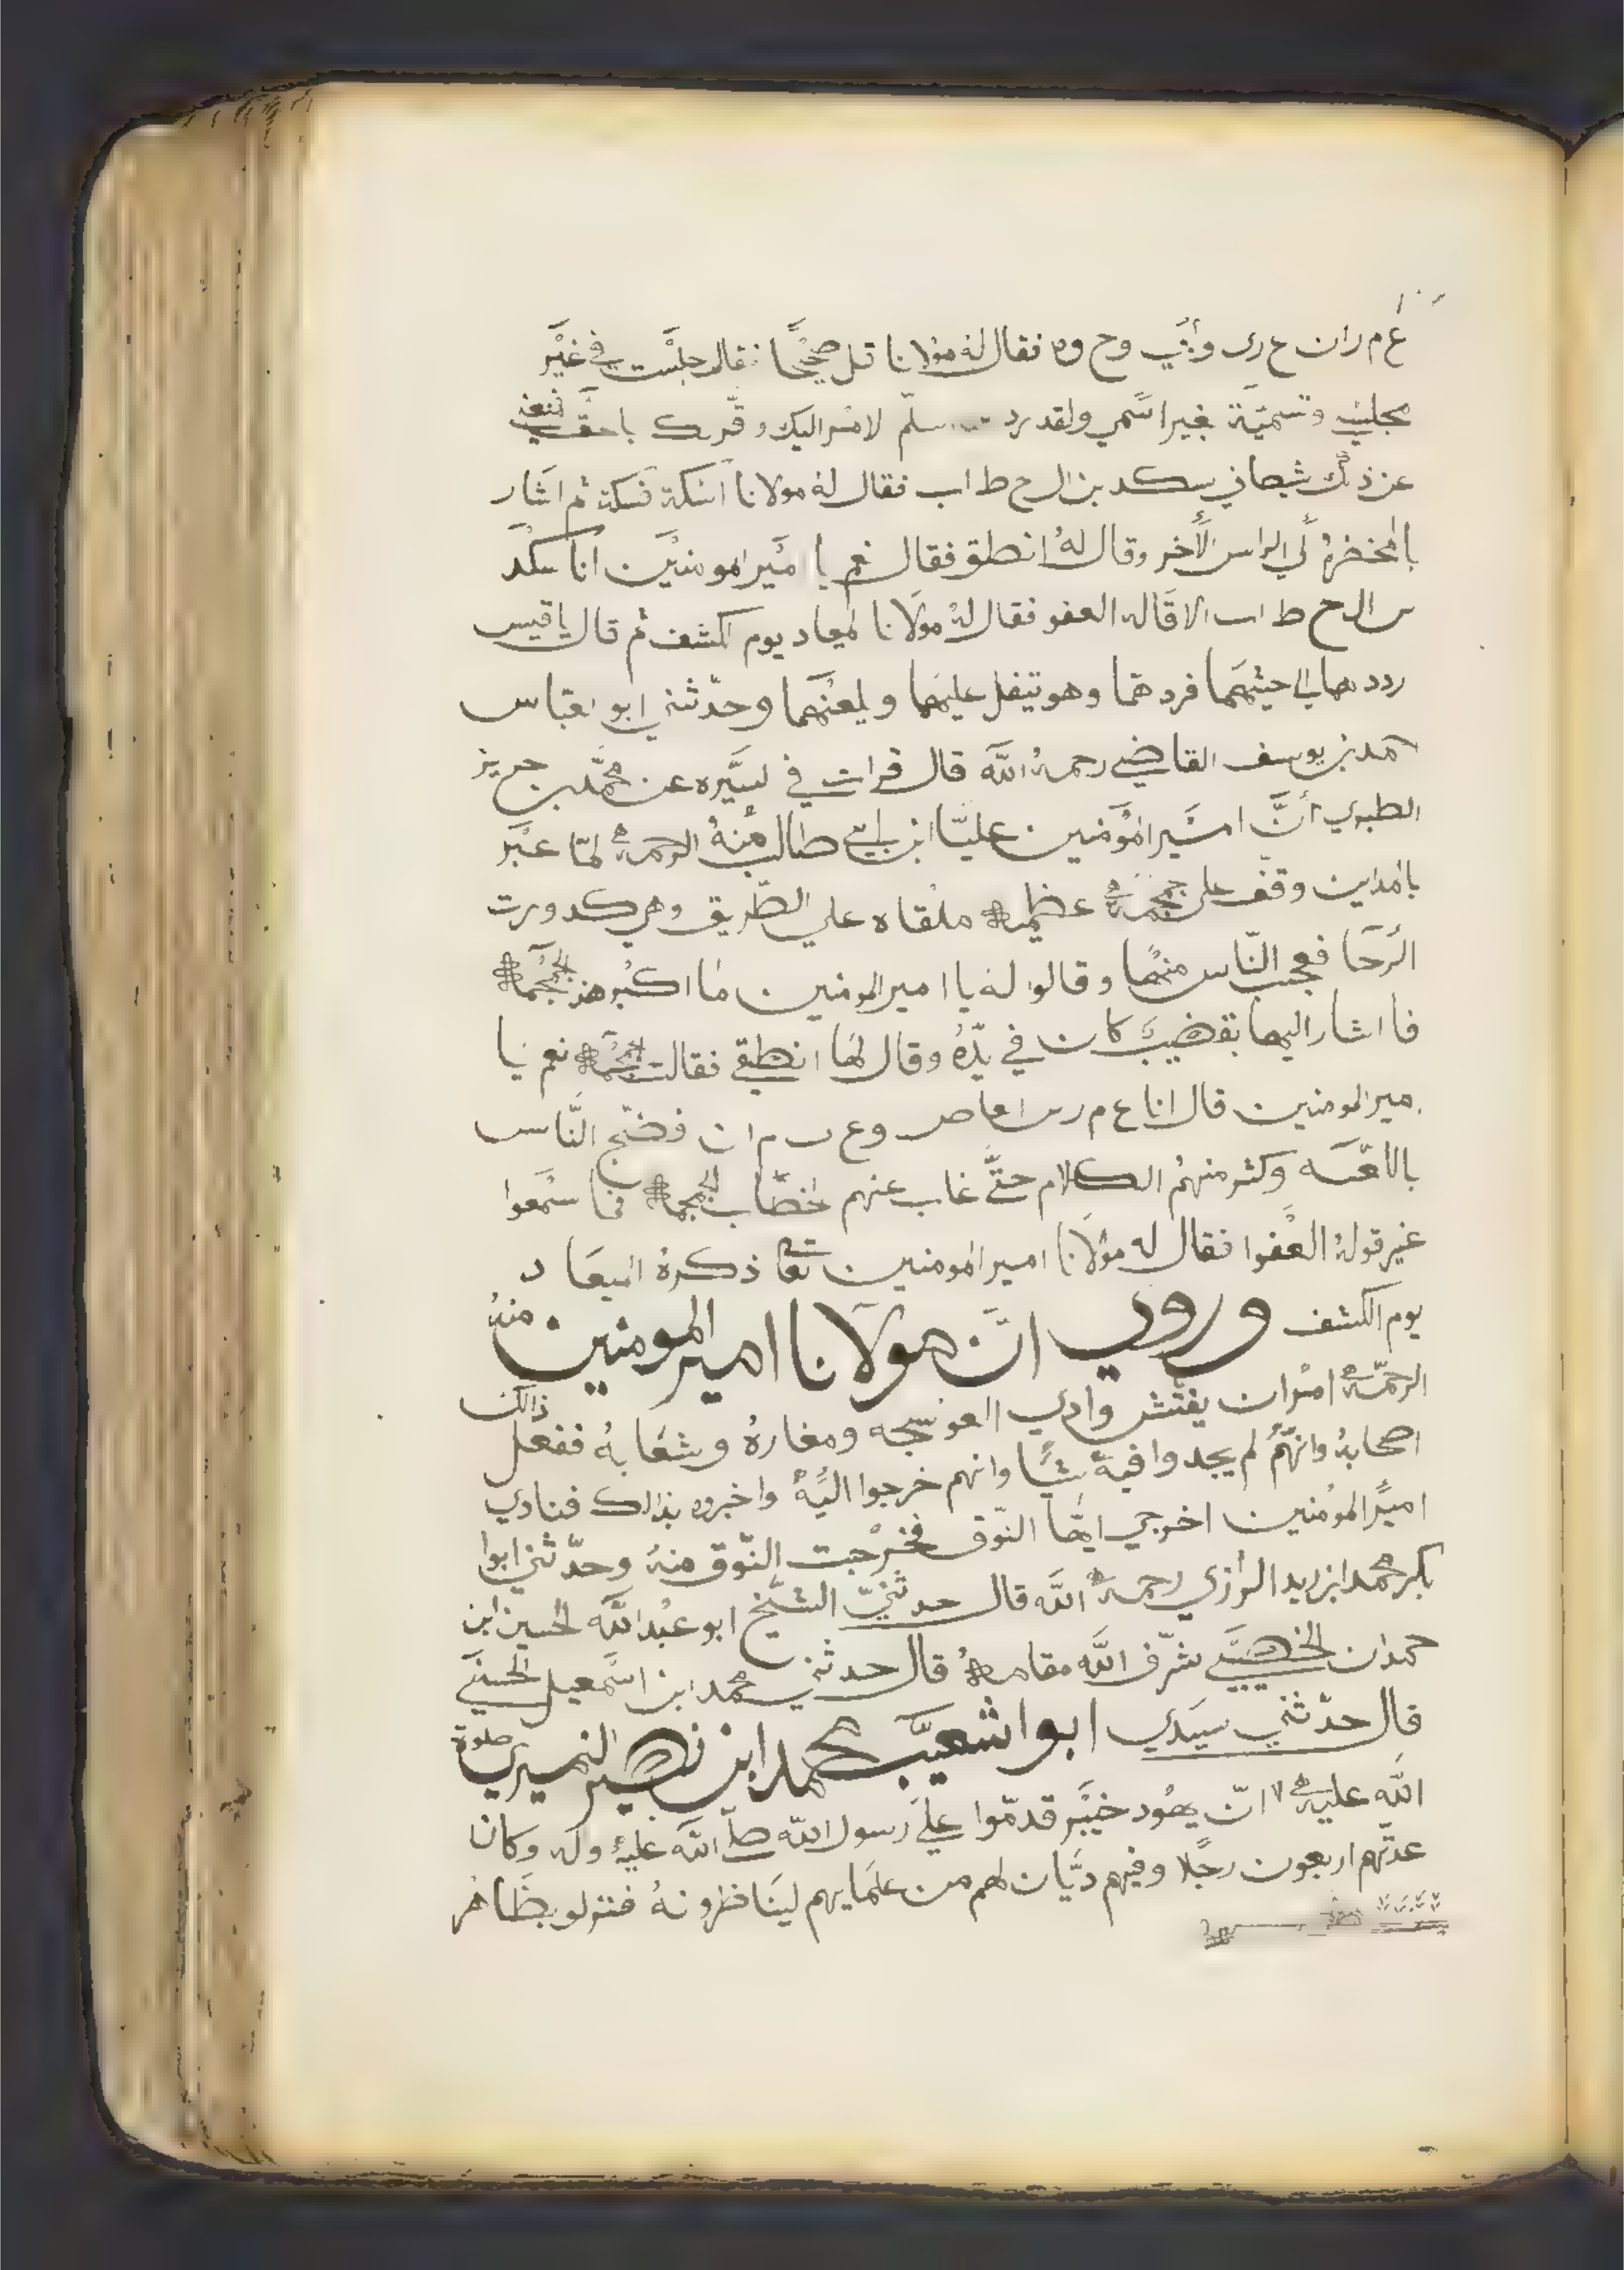 ع م ران ع دى وأبي وح وه فقال له مولانا قل صحيحًا فقال جلست في غير
مجلسي وتسميّة بغير اسمي ولقد سلّم لامر اليك وقرك باحق
عن ذلك شيصاني سكد بن ال ح ط اب فقال له مولانا اسكة فسكة ثم اشار
بالمخضرة لي الراس الأخر وقال له انطلق فقال نعم يا امير المومنين انا سكد
بن ال ح ط اب الاقاله العفو فقال له مولانا لميعاد يوم الكشف ثم قال يا قيس
ردد هما الي جيثهما فردهما وهو تيفل عليهما ويلعنهما وحدّثني ابو لعباس
احمد بن يوسف القاضي رحمة الله قال قرات في لسيره عن محمّد بن جرير
الطبري أنّ امير المؤمنين عليّا ابن ابي طالب منه الرحمة لمّا عبر
بالمداين وقف على جمجمة عظيمة ملقاه علي الطّريق وهي كدورت
الرّحا فعجب النّاس منها وقالوا له يا امير المومنين ما اكبر هذ الجمجمة
فا اشار اليها بقضيب كان في يدّه وقال لها انطقي فقالت الجمجمة نعم يا
مير المومنين قال انا ع م ر بن لعاص وع م ران فضّج النّاس
باللعنه وكثر منهم الكلام حتّى غاب عنهم لخطاب الجمجمة فما سمعوا
غير قوله العفوا فقال له مولانا امير المومنين تعا ذكره الميعاد
يوم الكشف وروي انّ مولانا امير المومنين منه
الرحمّة امر ان يفتش وادي العوسجه ومغاره وشعابه ففعل ذالك
اصحابه وانهم لم يجدوا فيه شيًا وانهم خرجوا اليه واخبروه بذالك فنادي
امير المومنين اخرجي ايها النّوق فخرجت النّوق منه وحدّثني ابوا
بكر محمد ابن زيد الرازي رحمة الله قال حدثنيّ الشيخ ابو عبد الله الحسين ابن
حمدان الخصيبي شرّف الله مقامه قال حدثني محمد ابن اسمعيل الحسني
قال حدّثني سيّدي ابوا شعيب محمد ابن نصير النميري صلوة
الله عليه انّ يهود خيبر قدمّوا علي رسول الله صلّ الله عليه وله وكان
عدّتهم اربعون رجلا وفيهم ديّان لهم من علمايهم لينا ظرونه فنزلو بظاهر